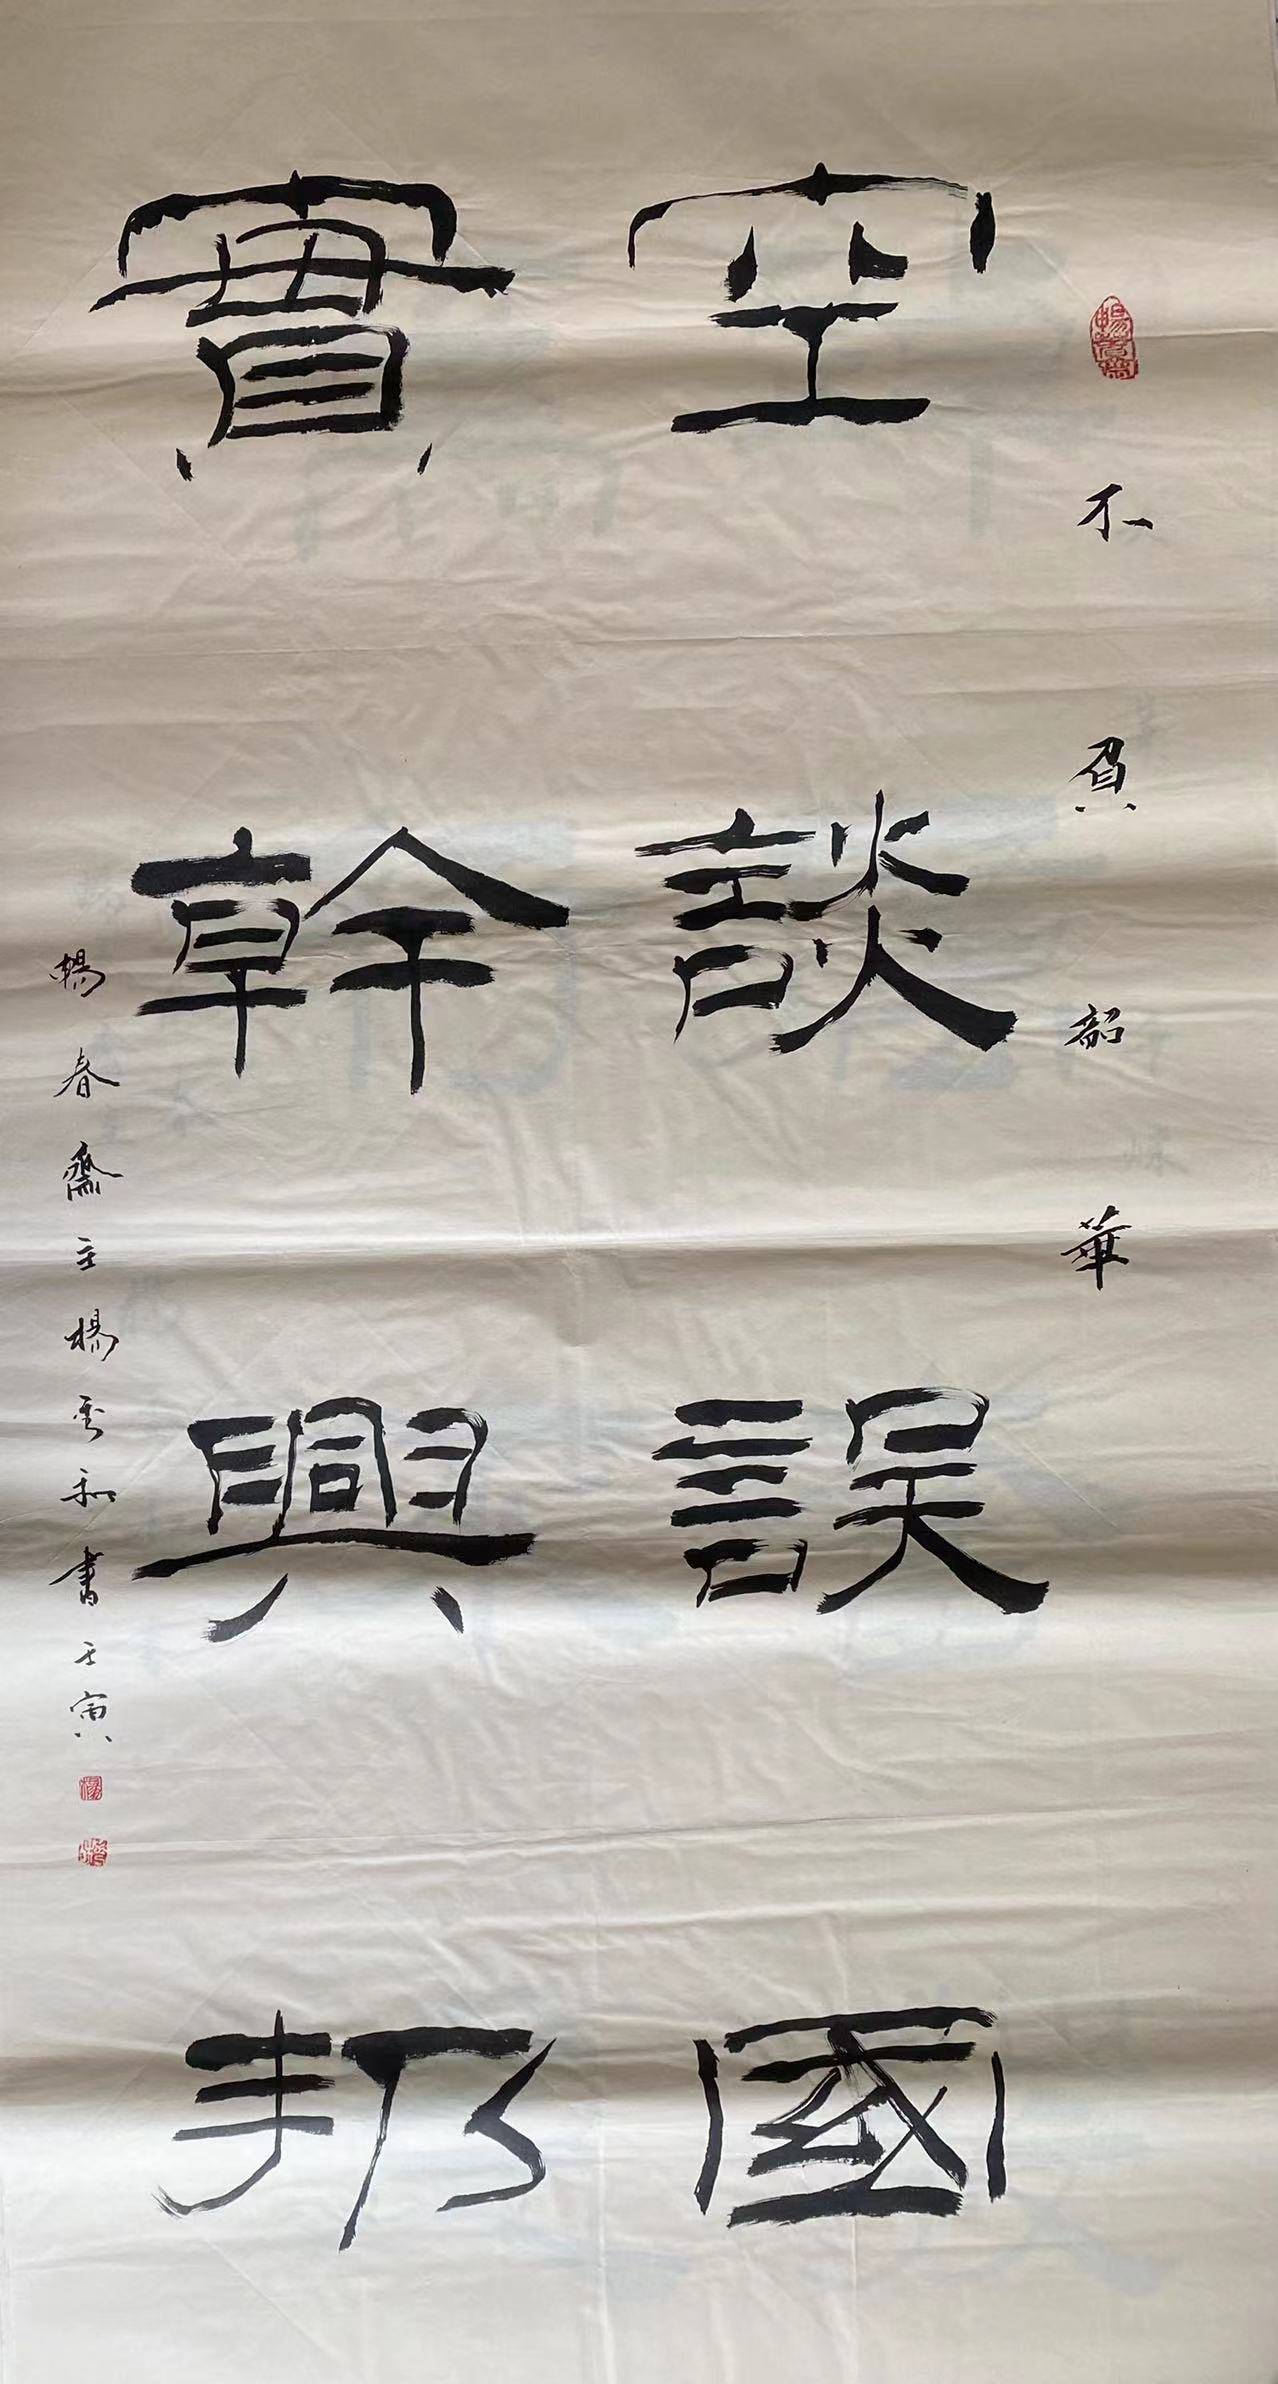 不負韶華
空談誤國
實幹興邦
暢春齋主楊雲和書壬寅